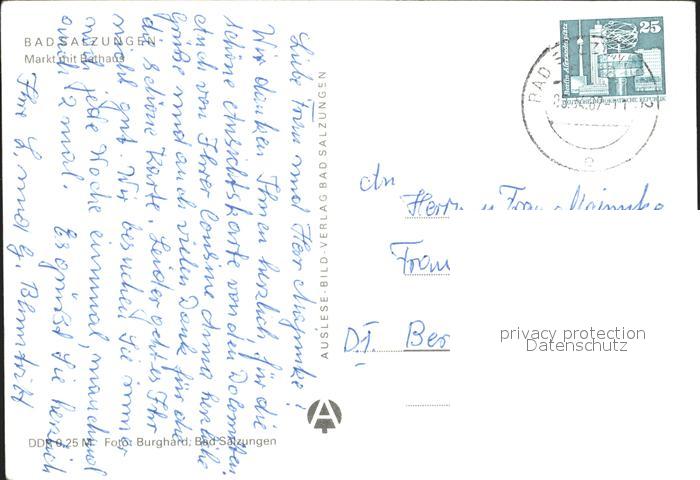 BAD SALZUNGEN
Markt mit Rathaus
Liebe Frau und Herr
Wir danken Ihnen herzlich für die
schöne Ansichtskarte von den Dolomiten
Auch von Ihrer Cousine Anna herzliche
Grüße und auch vielen Dank für die
schöne Karte. Leider geht es Ihr
nicht gut. Wir besuchen Sie immer
jede Woche einmal, manchmal
auch 2 mal. Es grüßt Sie herzlich
Ihre
DDR 0,25 M Foto: Burghard, Bad Salzungen
AUSLESE-BILD-VERLAG BAD SALZUNGEN
A
25
Berlin, Alexanderplatz
DEUTSCHE DEMOKRATISCHE REPUBLIK
BAD SALZ
e
An
Herrn u Frau
Frau
Ber
privacy protection
Datenschutz